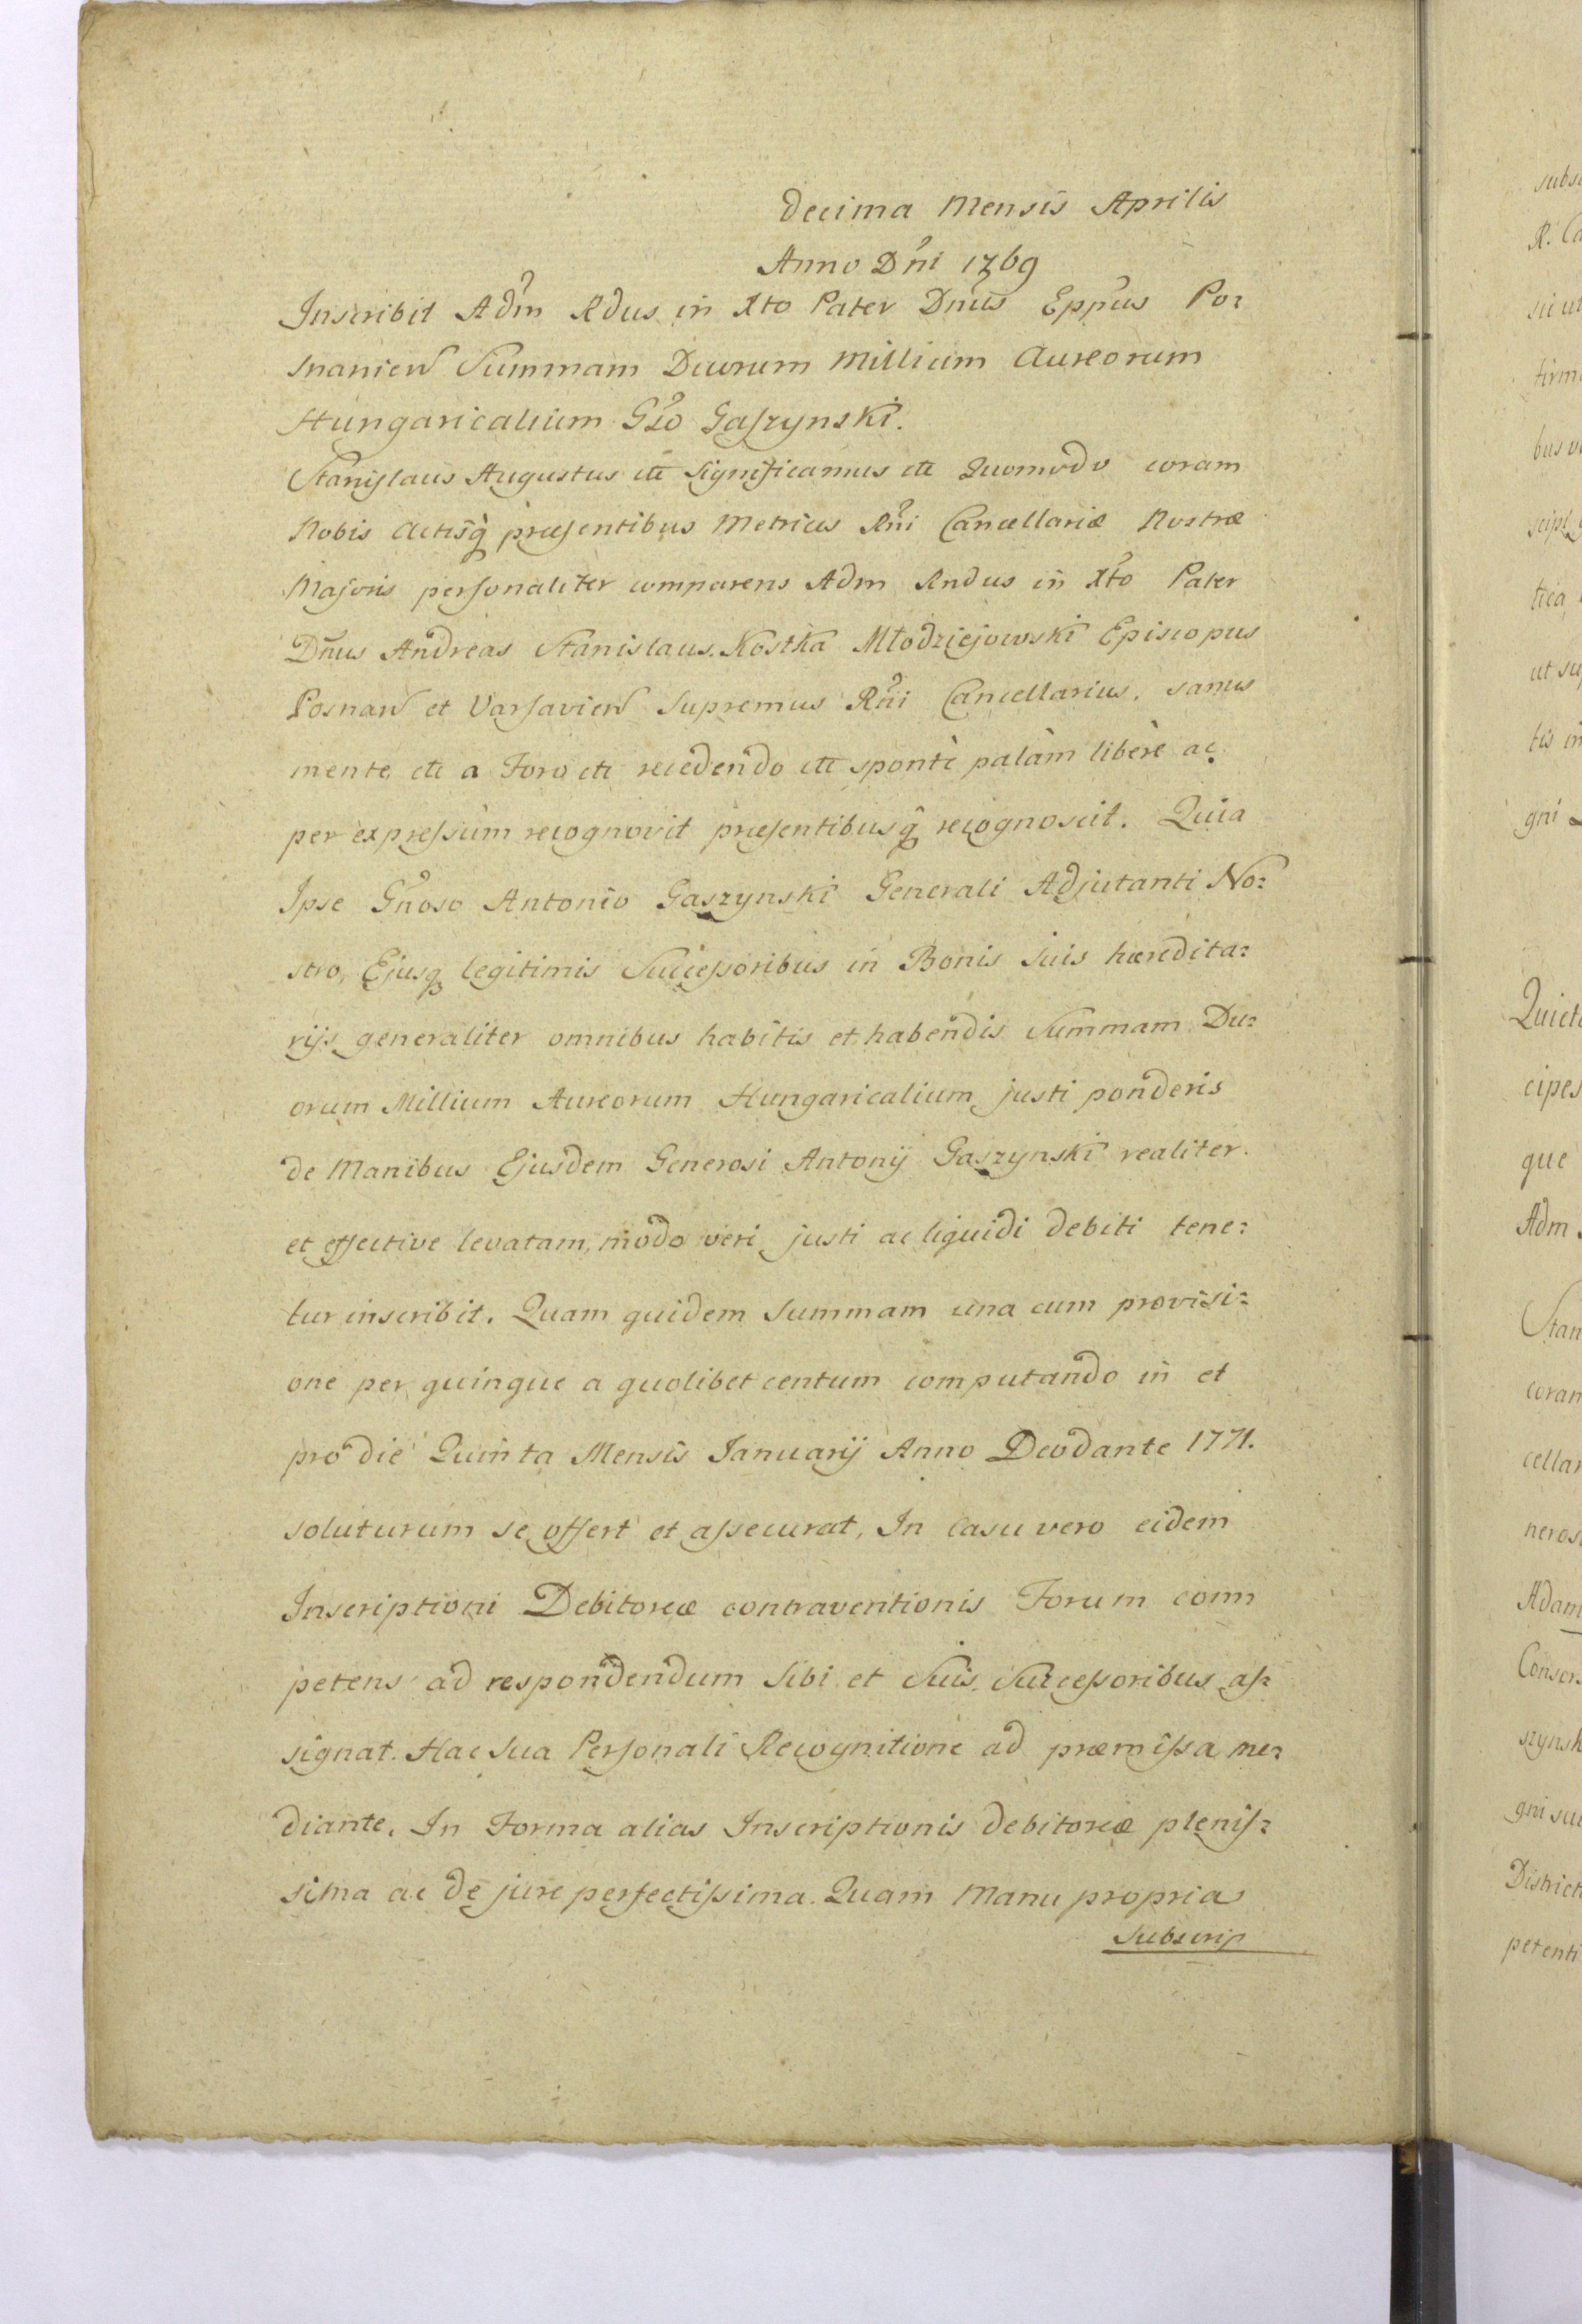 Decima Mensis Aprilis
Anno Dni 1769
Inscribit Adm Rdus in Xto Pater Dnus Eppus Po=
snanien Summam Duorum Millium Aureorum
Hungaricalium Gso Gaszynski.
Stanislaus Augustus etc Significamus etc Quomodo coram
Nobis Actisq præsentibus Metrices Rni Cancellariæ Nostræ
Majoris personaliter comparens Adm Rndus in Xto Pater
Dnus Andreas Stanislaus Kostka Młodziejowski Episcopus
Posnan et Varsavien Supremus Rni Cancellarius, sanus
mente etc a Foro etc recedendo etc sponte palàm liberè ac
per expressum recognovit præsentibusq recognoscit. Quia
Ipse Gnoso Antonio Gaszynski Generali Adjutanti No=
stro, Ejusq legitimis Successoribus in Bonis suis hæredita=
rijs generaliter omnibus habitis et habendis Summam Du=
orum Millium Aureorum Hungaricalium justi ponderis
de Manibus Ejusdem Generosi Antonij Gaszynski realiter
et effective levatam, modo veri justi ac liquidi debiti tene=
tur inscribit. Quam quidem Summam una cum provisi=
one per quinque a quolibet centum computando in et
pro die Quinta Mensis Januarij Anno Deo dante 1771.
soluturum se offert et assecurat, In Casu vero eidem
Inscriptioni Debitoreæ contraventionis Forum com
petens ad respondendum Sibi et Suis Successoribus as=
signat. Hac Sua Personali Recognitione ad præmissa me=
diante. In Forma alias Inscriptionis debitoreæ plenis=
sima ac de jure perfectissima. Quam Manu propria
Subscrip